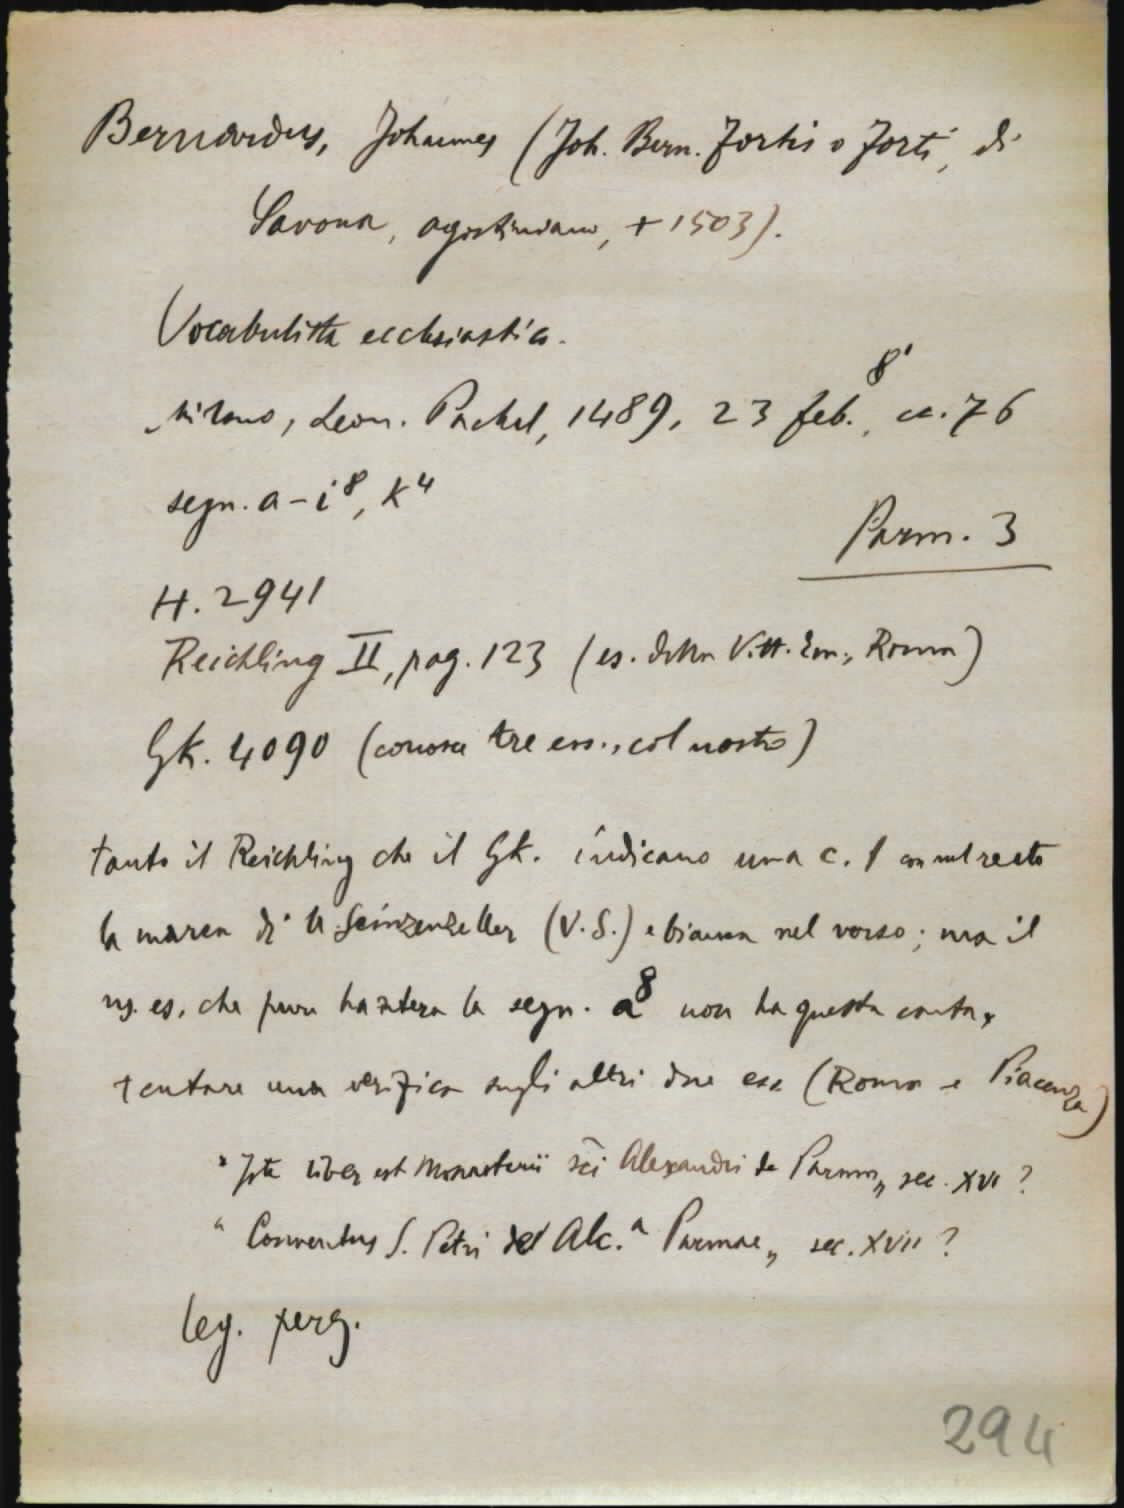 Bernardus, Johannes (Joh. Bern. Fortis o Forti, di
Savona, agostiniano, + 1503).
Vocabulista ecclesiastico.
Milano, Leon. Pachel, 1489, 23 feb., 8°, cc. 76
segn. a-i⁸, k⁴
Parm. 3
H. 2941
Reichling II, pag. 123 (es. della Vitt. Em., Roma)
GK. 4090 (conosce tre ess., col nostro)
tanto il Reichling che il GK. indicano una c. 1 con nel recto
la marca di U. Scinzenzeller (V.S.) e bianca nel verso; ma il
ns. es. che pure ha intera la segn. a⁸ non ha questa carta.
tentare una verifica sugli altri due ess (Roma e Piacenza)
"Iste liber est Monasterii sci Alexandri de Parma" sec. XVI ?
"Conventus S. Petri de Alc.a Parmae" sec. XVII ?
leg. perg.
294